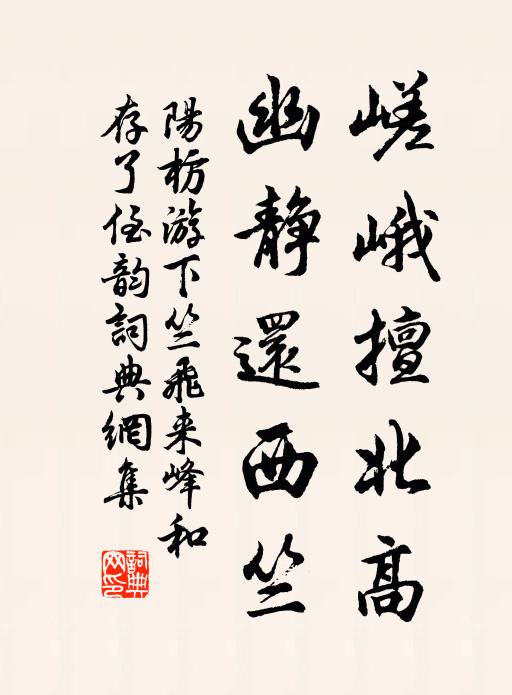 嵯峨擅北高
幽静還西竺
陽枋游下竺飛来峰和
存了侄韵詞典網集
詞典网印